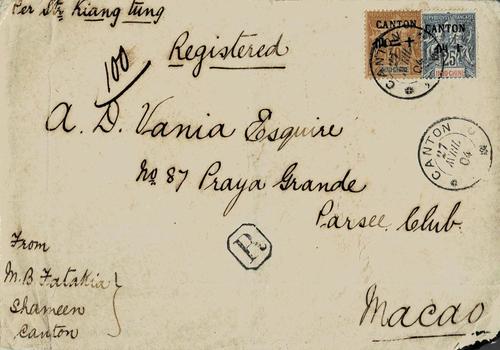 Per Str Kiang tung
Registered
100
CANTON
CANTON
25
CANTON
27
AVRIL
04
CANTON
27
AVRIL
04
A. D. Vania Esquire
No 87 Praya Grande
Parsee Club
R
From
M.B Fatakia
Shameen
Canton
Macao